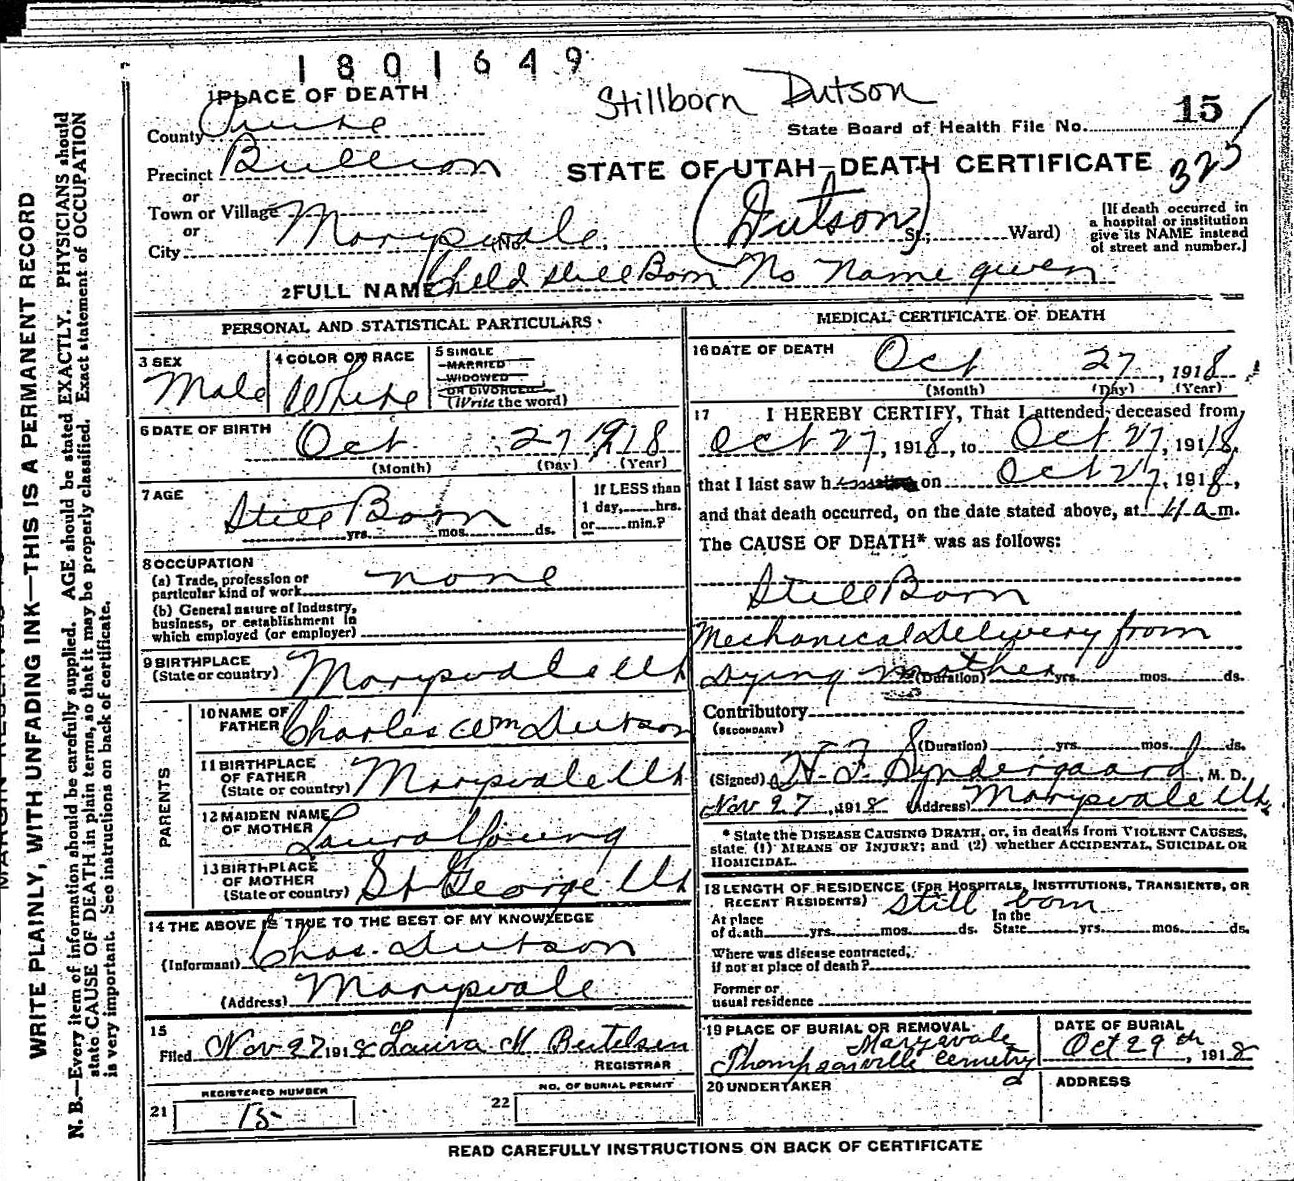 1801649
Stillborn Dutson
1 PLACE OF DEATH
15
County Piute
State Board of Health File No.
325
Precinct Bullion
STATE OF UTAH—DEATH CERTIFICATE
or
Town or Village
or
City Marysvale, (No. St.; Ward)
(Dutson)
[If death occurred in
a hospital or institution
give its NAME instead
of street and number.]
2 FULL NAME Child Still Born No Name given
PERSONAL AND STATISTICAL PARTICULARS
3 SEX
Male
4 COLOR OR RACE
White
5 SINGLE
MARRIED
WIDOWED
OR DIVORCED
(Write the word)
6 DATE OF BIRTH
Oct. 27 1918
(Month) (Day) (Year)
7 AGE
Still Born
yrs. mos. ds.
If LESS than
1 day, hrs.
or min.?
8 OCCUPATION
(a) Trade, profession or
particular kind of work none
(b) General nature of Industry,
business, or establishment in
which employed (or employer)
9 BIRTHPLACE
(State or country) Marysvale Ut
PARENTS
10 NAME OF
FATHER Charles Wm Dutson
11 BIRTHPLACE
OF FATHER
(State or country) Marysvale Ut
12 MAIDEN NAME
OF MOTHER Laura Young
13 BIRTHPLACE
OF MOTHER
(State or country) St George Ut
14 THE ABOVE IS TRUE TO THE BEST OF MY KNOWLEDGE
(Informant) Chas. Dutson
(Address) Marysvale
15
Filed Nov 27 1918 Laura M Bertelsen
REGISTRAR
REGISTERED NUMBER
21 15
NO. OF BURIAL PERMIT
22
MEDICAL CERTIFICATE OF DEATH
16 DATE OF DEATH
Oct 27, 1918
(Month) (Day) (Year)
17 I HEREBY CERTIFY, That I attended deceased from
Oct 27, 1918, to Oct 27, 1918,
that I last saw h on Oct 27, 1918,
and that death occurred, on the date stated above, at 4 a m.
The CAUSE OF DEATH* was as follows:
Still Born
Mechanical Delivery from
dying mother
(Duration) yrs. mos. ds.
Contributory
(SECONDARY)
(Duration) yrs. mos. ds.
(Signed) H. F. Syndergaard, M. D.
Nov 27, 1918 (Address) Marysvale Ut
* State the DISEASE CAUSING DEATH, or, in deaths from VIOLENT CAUSES,
state (1) MEANS OF INJURY; and (2) whether ACCIDENTAL, SUICIDAL OR
HOMICIDAL.
18 LENGTH OF RESIDENCE (FOR HOSPITALS, INSTITUTIONS, TRANSIENTS, OR
RECENT RESIDENTS) still born
At place
of death yrs. mos. ds.
In the
State yrs. mos. ds.
Where was disease contracted,
if not at place of death?
Former or
usual residence
19 PLACE OF BURIAL OR REMOVAL
Marysvale
Thompsonville Cemetry
DATE OF BURIAL
Oct 29th, 1918
20 UNDERTAKER
ADDRESS
READ CAREFULLY INSTRUCTIONS ON BACK OF CERTIFICATE
WRITE PLAINLY, WITH UNFADING INK—THIS IS A PERMANENT RECORD
N. B.—Every item of information should be carefully supplied. AGE should be stated EXACTLY. PHYSICIANS should
state CAUSE OF DEATH in plain terms, so that it may be properly classified. Exact statement of OCCUPATION
is very important. See instructions on back of certificate.